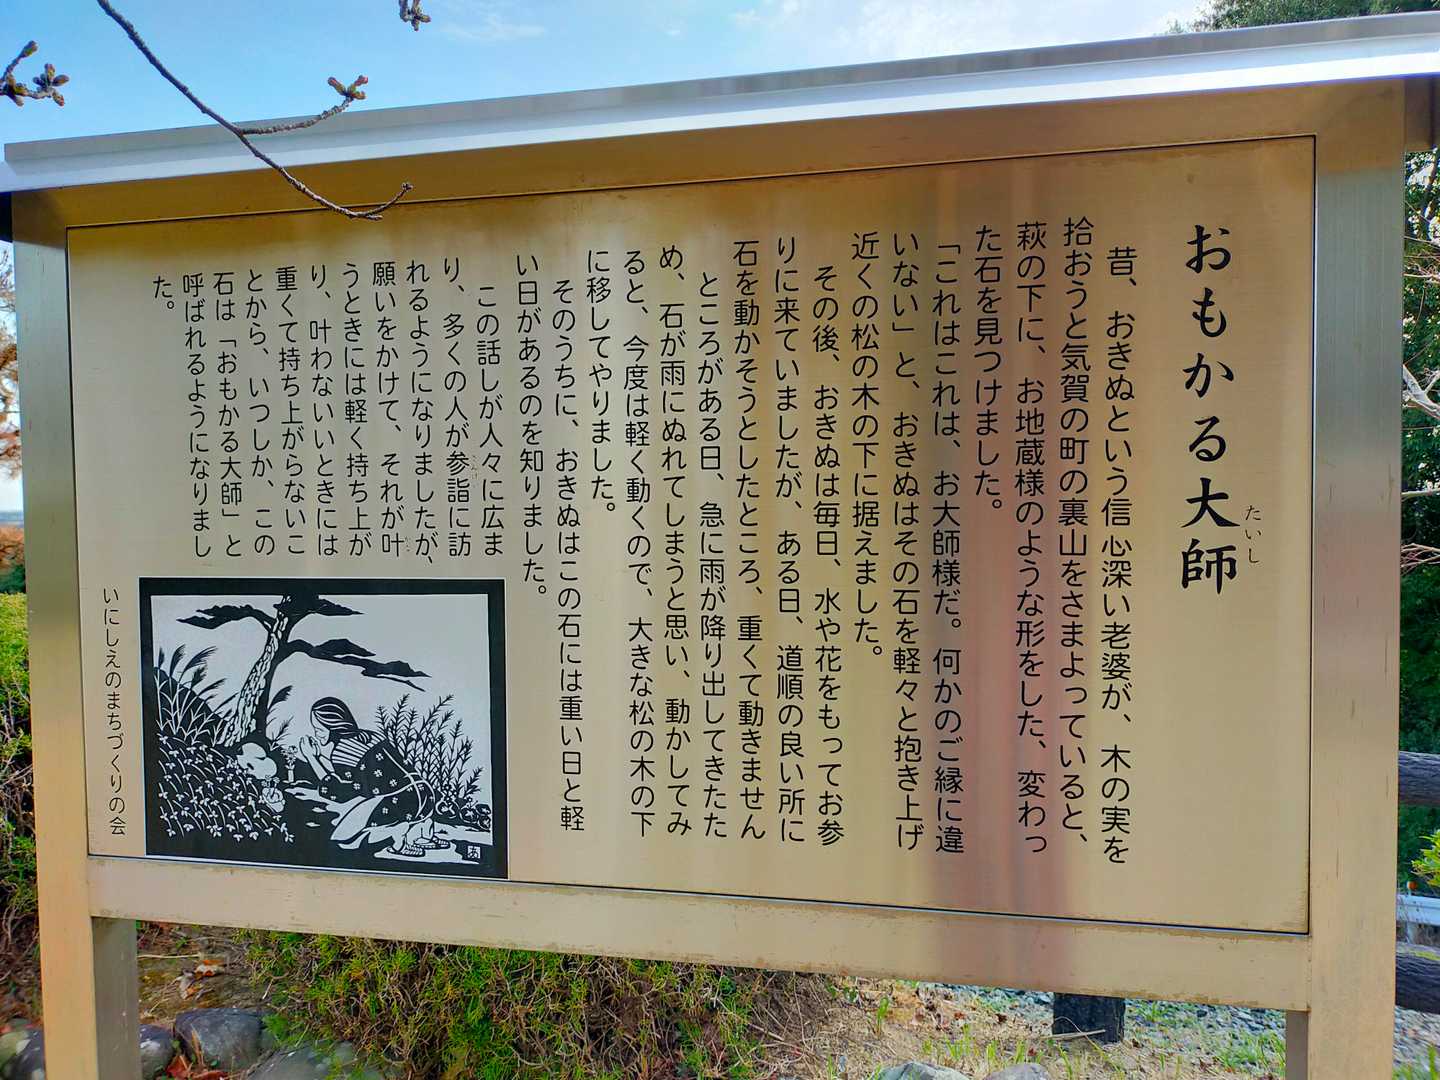 おもかる大師
たいし
昔、おきぬという信心深い老婆が、木の実を
拾おうと気賀の町の裏山をさまよっていると、
萩の下に、お地蔵様のような形をした、変わっ
た石を見つけました。
「これはこれは、お大師様だ。何かのご縁に違
いない」と、おきぬはその石を軽々と抱き上げ
近くの松の木の下に据えました。
その後、おきぬは毎日、水や花をもってお参
りに来ていましたが、ある日、道順の良い所に
石を動かそうとしたところ、重くて動きません
ところがある日、急に雨が降り出してきたた
め、石が雨にぬれてしまうと思い、動かしてみ
ると、今度は軽く動くので、大きな松の木の下
に移してやりました。
そのうちに、おきぬはこの石には重い日と軽
い日があるのを知りました。
この話しが人々に広ま
り、多くの人が参詣に訪
れるようになりましたが、
願いをかけて、それが叶
うときには軽く持ち上が
り、叶わないいときには
重くて持ち上がらないこ
とから、いつしか、この
石は「おもかる大師」と
呼ばれるようになりまし
た。
いにしえのまちづくりの会